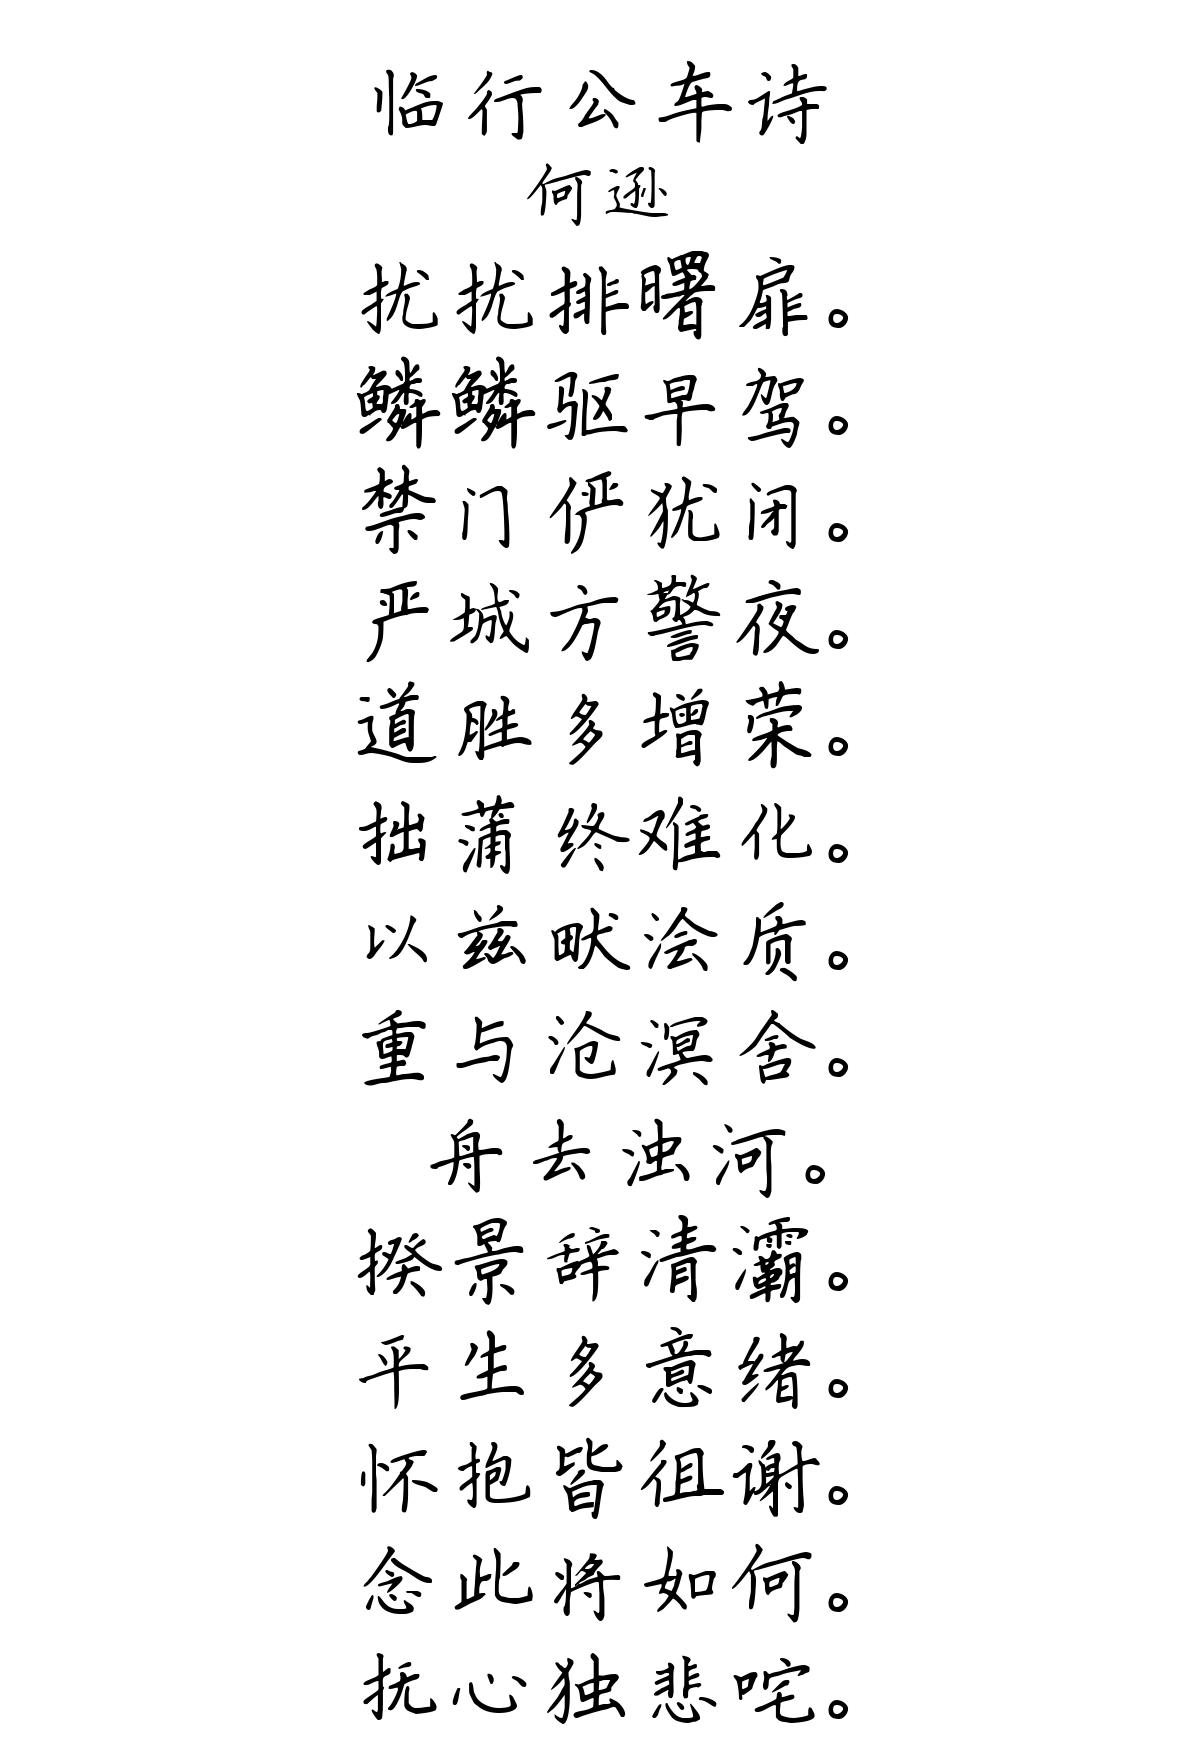 临行公车诗
何逊
扰扰排曙扉。
鳞鳞驱早驾。
禁门俨犹闭。
严城方警夜。
道胜多增荣。
拙蒲终难化。
以兹畎浍质。
重与沧溟舍。
舟去浊河。
揆景辞清灞。
平生多意绪。
怀抱皆徂谢。
念此将如何。
抚心独悲咤。